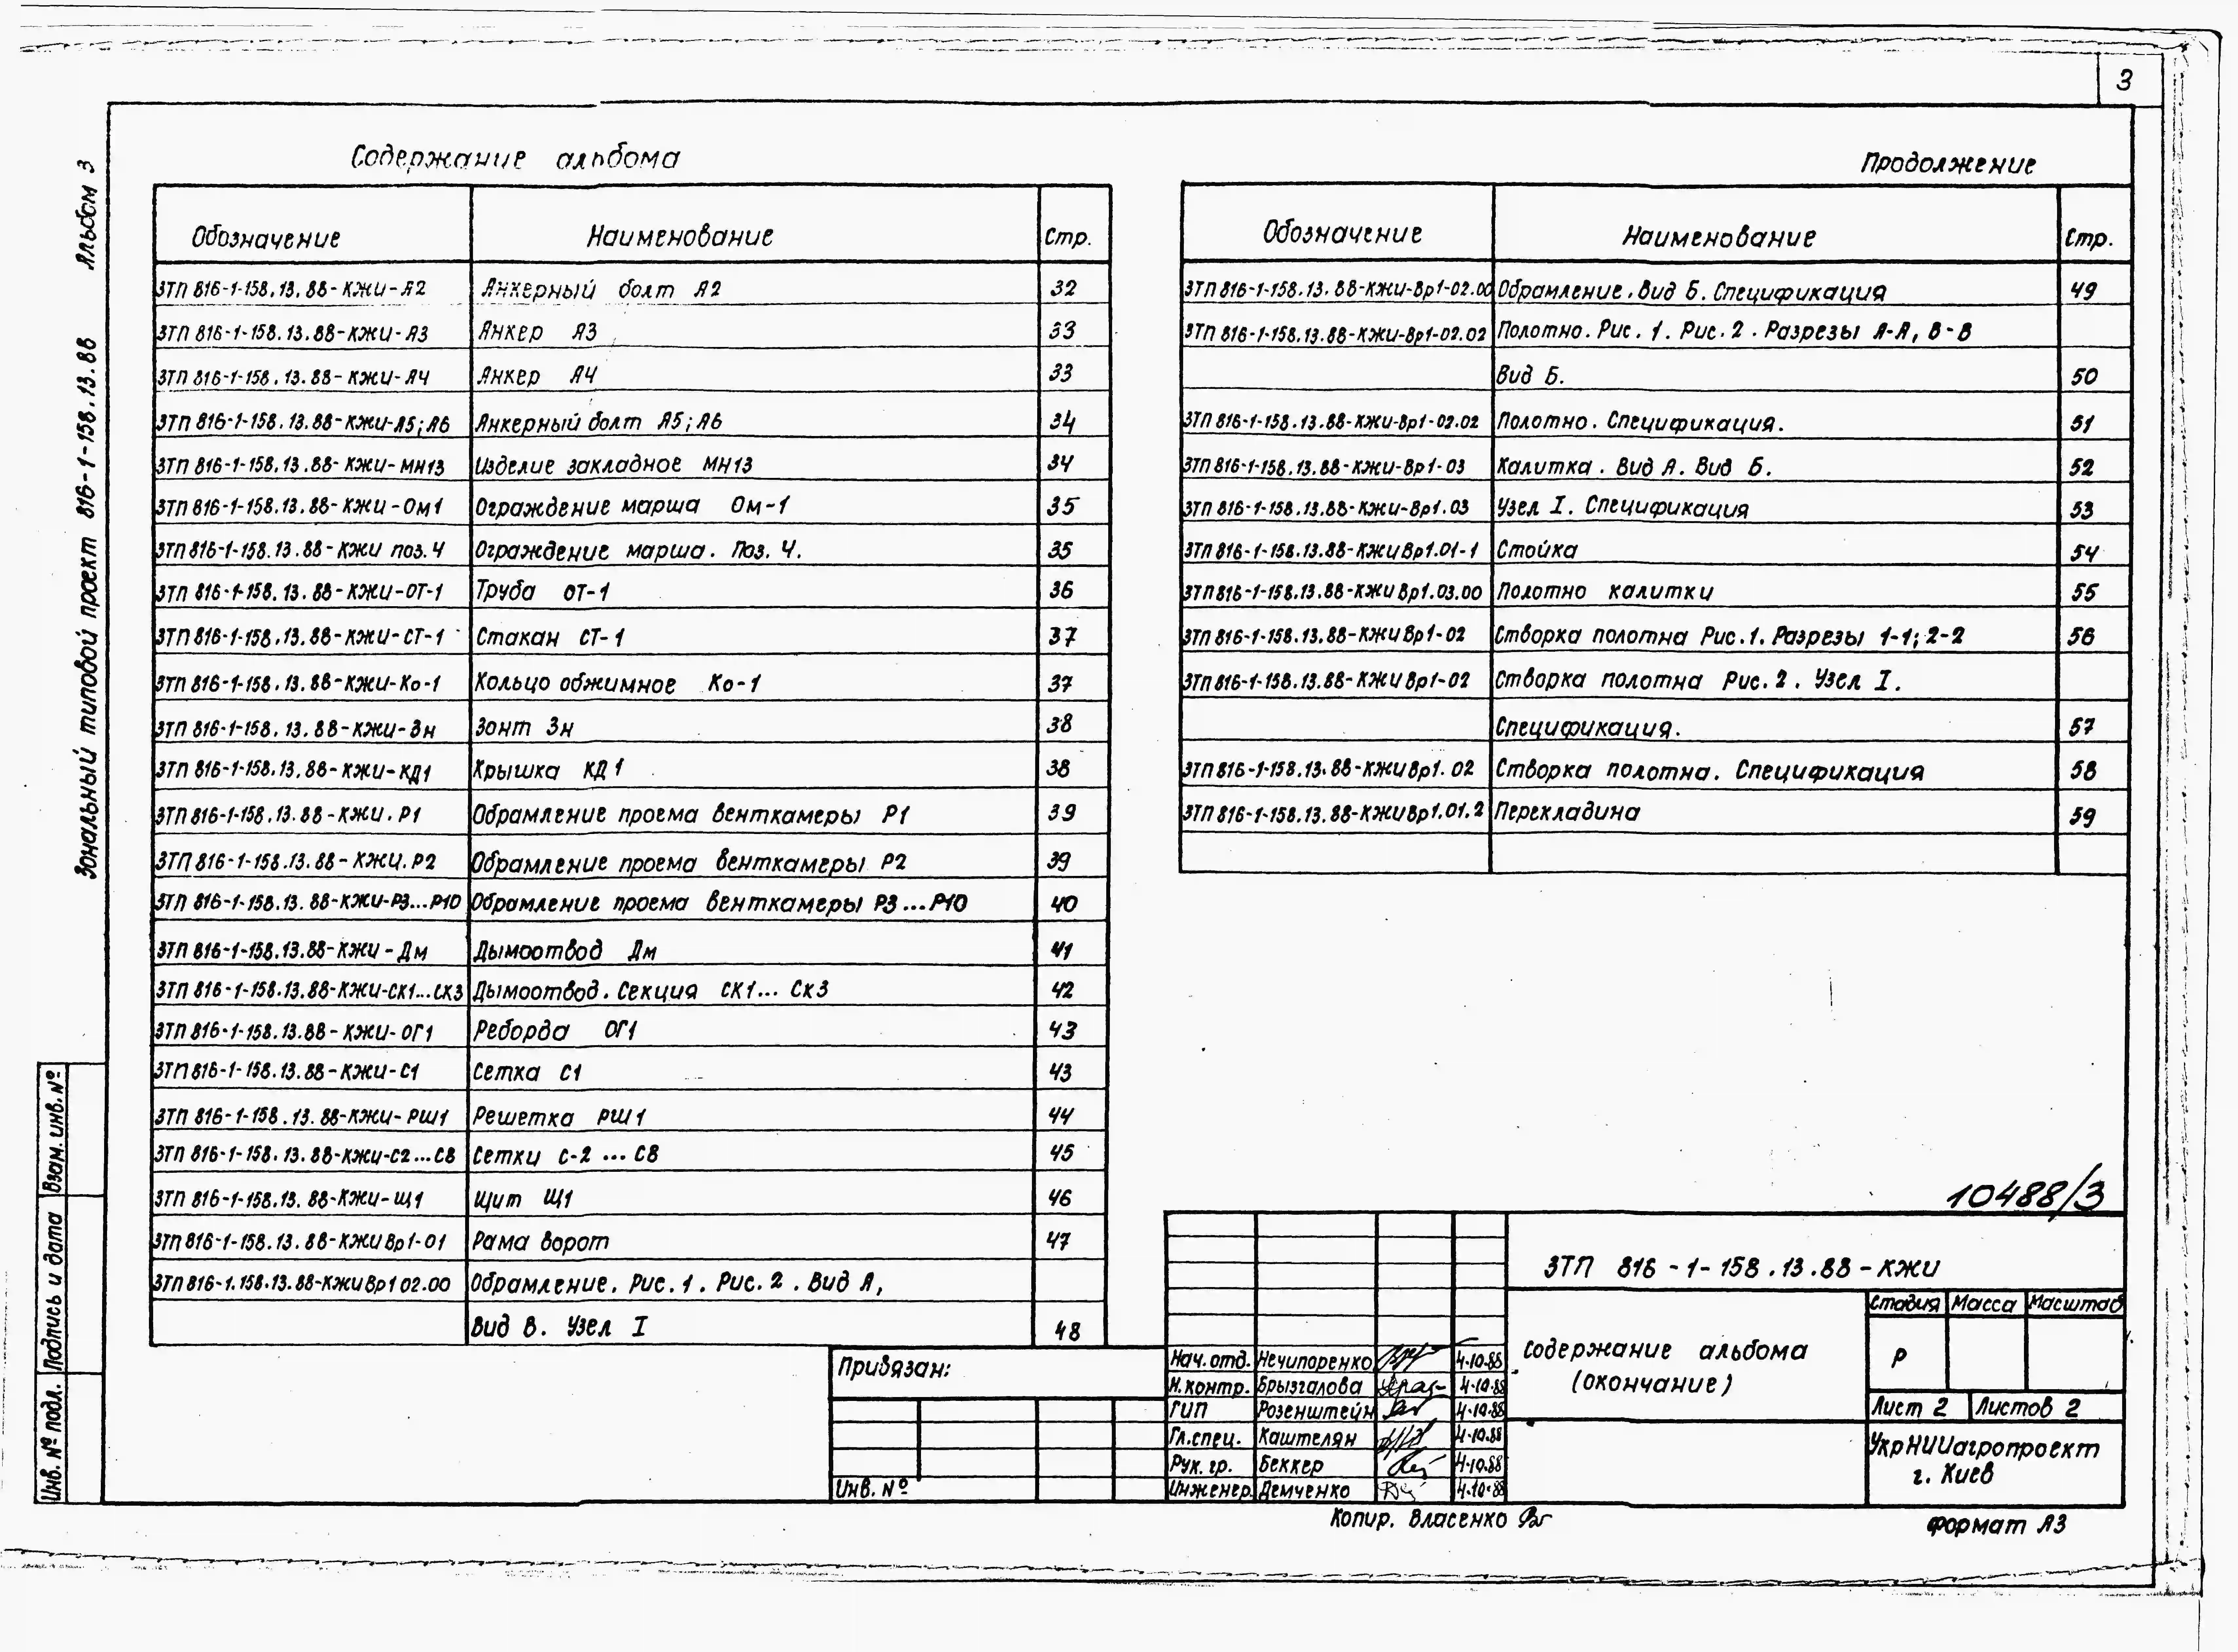 3
Содержание альбома
Обозначение Наименование Стр.
ЗТП 816-1-158.13.88-КЖИ-А2 Анкерный болт А2 32
ЗТП 816-1-158.13.88-КЖИ-А3 Анкер А3 33
ЗТП 816-1-158.13.88-КЖИ-А4 Анкер А4 33
ЗТП 816-1-158.13.88-КЖИ-А5;А6 Анкерный болт А5;А6 34
ЗТП 816-1-158.13.88-КЖИ-МН13 Изделие закладное МН13 34
ЗТП 816-1-158.13.88-КЖИ-Ом1 Ограждение марша Ом-1 35
ЗТП 816-1-158.13.88-КЖИ поз.4 Ограждение марша. Поз. 4. 35
ЗТП 816-1-158.13.88-КЖИ-ОТ-1 Труба ОТ-1 36
ЗТП 816-1-158.13.88-КЖИ-СТ-1 Стакан СТ-1 37
ЗТП 816-1-158.13.88-КЖИ-Ко-1 Кольцо обжимное Ко-1 37
ЗТП 816-1-158.13.88-КЖИ-Зн Зонт Зн 38
ЗТП 816-1-158.13.88-КЖИ-КД1 Крышка КД1 38
ЗТП 816-1-158.13.88-КЖИ.Р1 Обрамление проема венткамеры Р1 39
ЗТП 816-1-158.13.88-КЖИ.Р2 Обрамление проема венткамеры Р2 39
ЗТП 816-1-158.13.88-КЖИ-Р3...Р10 Обрамление проема венткамеры Р3...Р10 40
ЗТП 816-1-158.13.88-КЖИ-Дм Дымоотвод Дм 41
ЗТП 816-1-158.13.88-КЖИ-СК1...СК3 Дымоотвод. Секция СК1... СК3 42
ЗТП 816-1-158.13.88-КЖИ-ОГ1 Реборда ОГ1 43
ЗТП 816-1-158.13.88-КЖИ-С1 Сетка С1 43
ЗТП 816-1-158.13.88-КЖИ-РШ1 Решетка РШ1 44
ЗТП 816-1-158.13.88-КЖИ-С2...С8 Сетки С-2 ... С8 45
ЗТП 816-1-158.13.88-КЖИ-Щ1 Щит Щ1 46
ЗТП 816-1-158.13.88-КЖИВр1-01 Рама ворот 47
ЗТП 816-1.158.13.88-КЖИВр1 02.00 Обрамление. Рис.1. Рис.2. Вид А,
Вид В. Узел I 48
Продолжение
Обозначение Наименование Стр.
ЗТП 816-1-158.13.88-КЖИ-Вр1-02.00 Обрамление. Вид Б. Спецификация 49
ЗТП 816-1-158.13.88-КЖИ-Вр1-02.02 Полотно. Рис. 1. Рис. 2. Разрезы А-А, В-В
Вид Б. 50
ЗТП 816-1-158.13.88-КЖИ-Вр1-02.02 Полотно. Спецификация. 51
ЗТП 816-1-158.13.88-КЖИ-Вр1-03 Калитка. Вид А. Вид Б. 52
ЗТП 816-1-158.13.88-КЖИ-Вр1.03 Узел I. Спецификация 53
ЗТП 816-1-158.13.88-КЖИВр1.01-1 Стойка 54
ЗТП 816-1-158.13.88-КЖИВр1.03.00 Полотно калитки 55
ЗТП 816-1-158.13.88-КЖИВр1-02 Створка полотна Рис.1. Разрезы 1-1; 2-2 56
ЗТП 816-1-158.13.88-КЖИВр1-02 Створка полотна Рис. 2. Узел I.
Спецификация. 57
ЗТП 816-1-158.13.88-КЖИВр1.02 Створка полотна. Спецификация 58
ЗТП 816-1-158.13.88-КЖИВр1.01.2 Перекладина 59
10488/3
ЗТП 816-1-158.13.88-КЖИ
Содержание альбома
(окончание)
Стадия Масса Масштаб
Р
Лист 2 Листов 2
УкрНИИагропроект
г. Киев
Привязан:
Инв. №
Нач.отд. Нечипоренко 4.10.88
Н.контр. Брызгалова 4.10.88
ГИП Розенштейн 4.10.88
Гл.спец. Каштелян 4.10.88
Рук. гр. Беккер 4.10.88
Инженер. Демченко 4.10.88
Копир. Власенко
Формат А3
Зональный типовой проект 816-1-158.13.88 Альбом 3
Инв. № подл. Подпись и дата Взам. инв. №